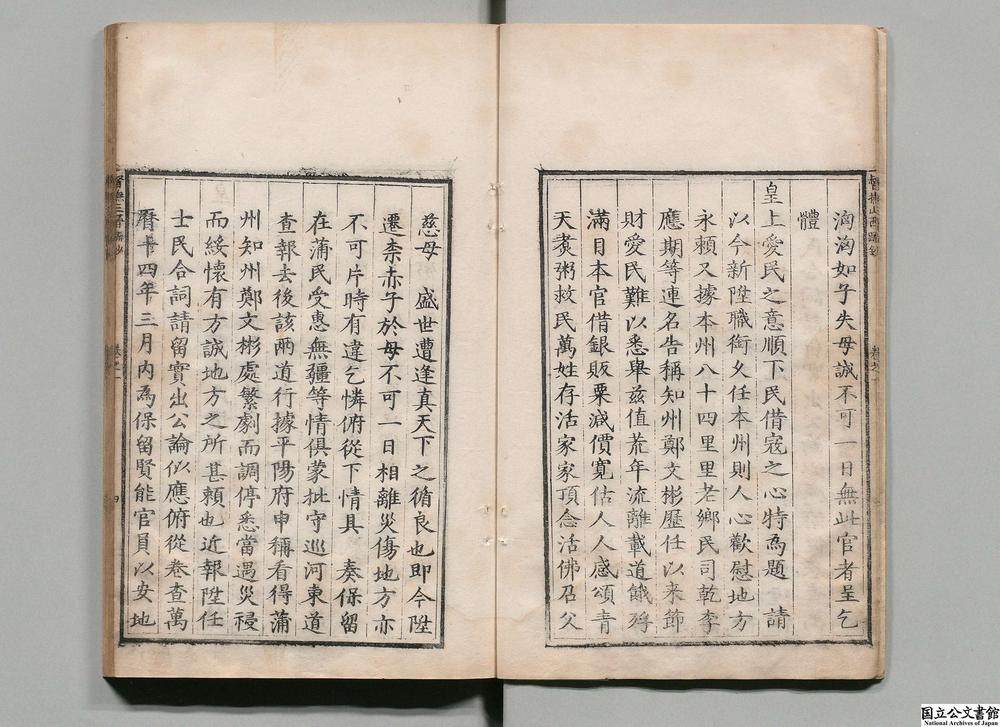 洶洶如子失母誠不可一日無此官者呈乞
體
皇上愛民之意順下民借寇之心特為題 請
以今新陞職銜久任本州則人心歡慰地方
永賴又據本州八十四里里老鄉民司乾李
應期等連名告稱知州鄭文彬歷任以來節
財愛民難以悉舉茲值荒年流離載道餓殍
滿目本官借銀販粟減價寬估人人感頌青
天煮粥救民萬姓存活家家頂念活佛召父
慈母 盛世遭逢真天下之循良也即今陞
遷柰赤子於母不可一日相離災傷地方亦
不可片時有違乞憐俯從下情具 奏保留
在蒲民受惠無疆等情俱蒙批守巡河東道
查報去後該兩道行據平陽府申稱看得蒲
州知州鄭文彬處繁劇而調停悉當遇災祲
而綏懷有方誠地方之所甚賴也近報陞任
士民合詞請留實出公論似應俯從卷查萬
曆十四年三月內為保留賢能官員以安地
四
国立公文書館
National Archives of Japan